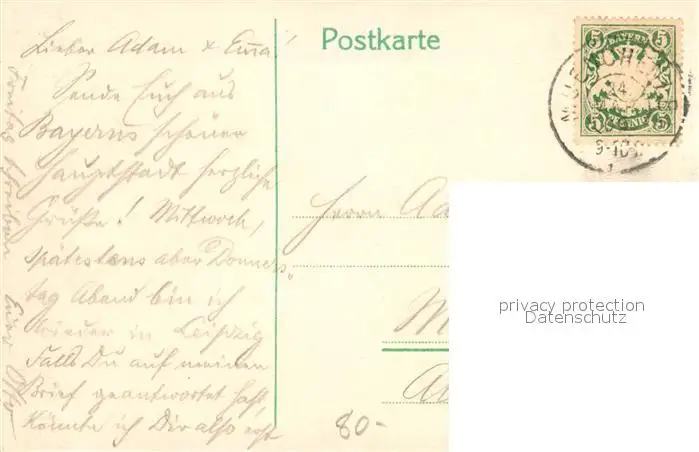 Postkarte
Lieber Adam & Emma!
Sende Euch aus
Bayerns schöner
Hauptstadt herzliche
Grüße! Mittwoch,
spätestens aber Donners-
tag Abend bin ich
wieder in Leipzig
Falls Du auf meinen
Brief geantwortet hast,
könnte ich Dir also erst
Freitag schreiben
Euer Otto
BAYERN
5 5
5 5
PFENNIG
MUENCHEN
14
9-10
Herrn
M
80-
privacy protection
Datenschutz